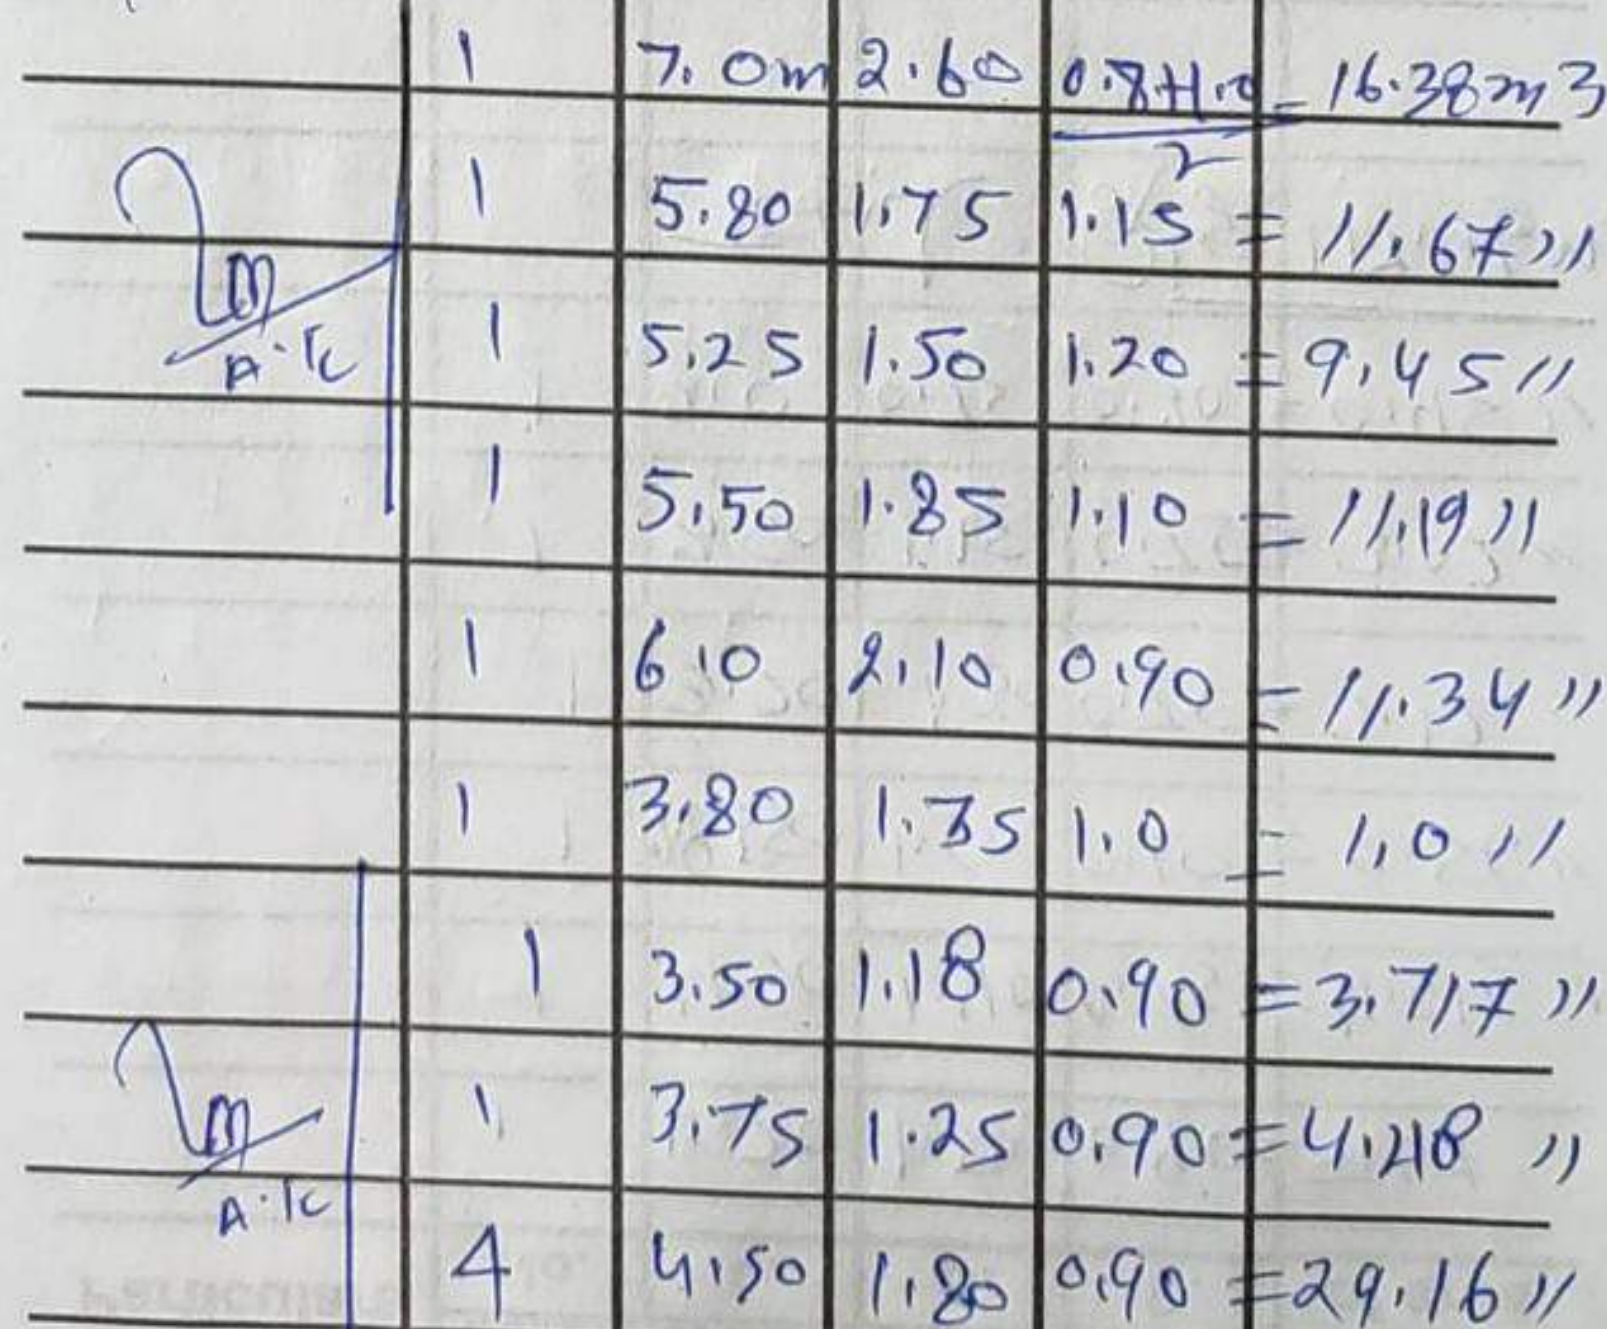 1 7.0m 2.60 0.8+1.0 = 16.38m3
2
1 5.80 1.75 1.15 = 11.67 "
1 5.25 1.50 1.20 = 9.45 "
A.K
1 5.50 1.85 1.10 = 11.19 "
1 6.0 2.10 0.90 = 11.34 "
1 3.80 1.35 1.0 = 1.0 "
1 3.50 1.18 0.90 = 3.717 "
1 3.75 1.25 0.90 = 4.218 "
A.K
4 4.50 1.80 0.90 = 29.16 "